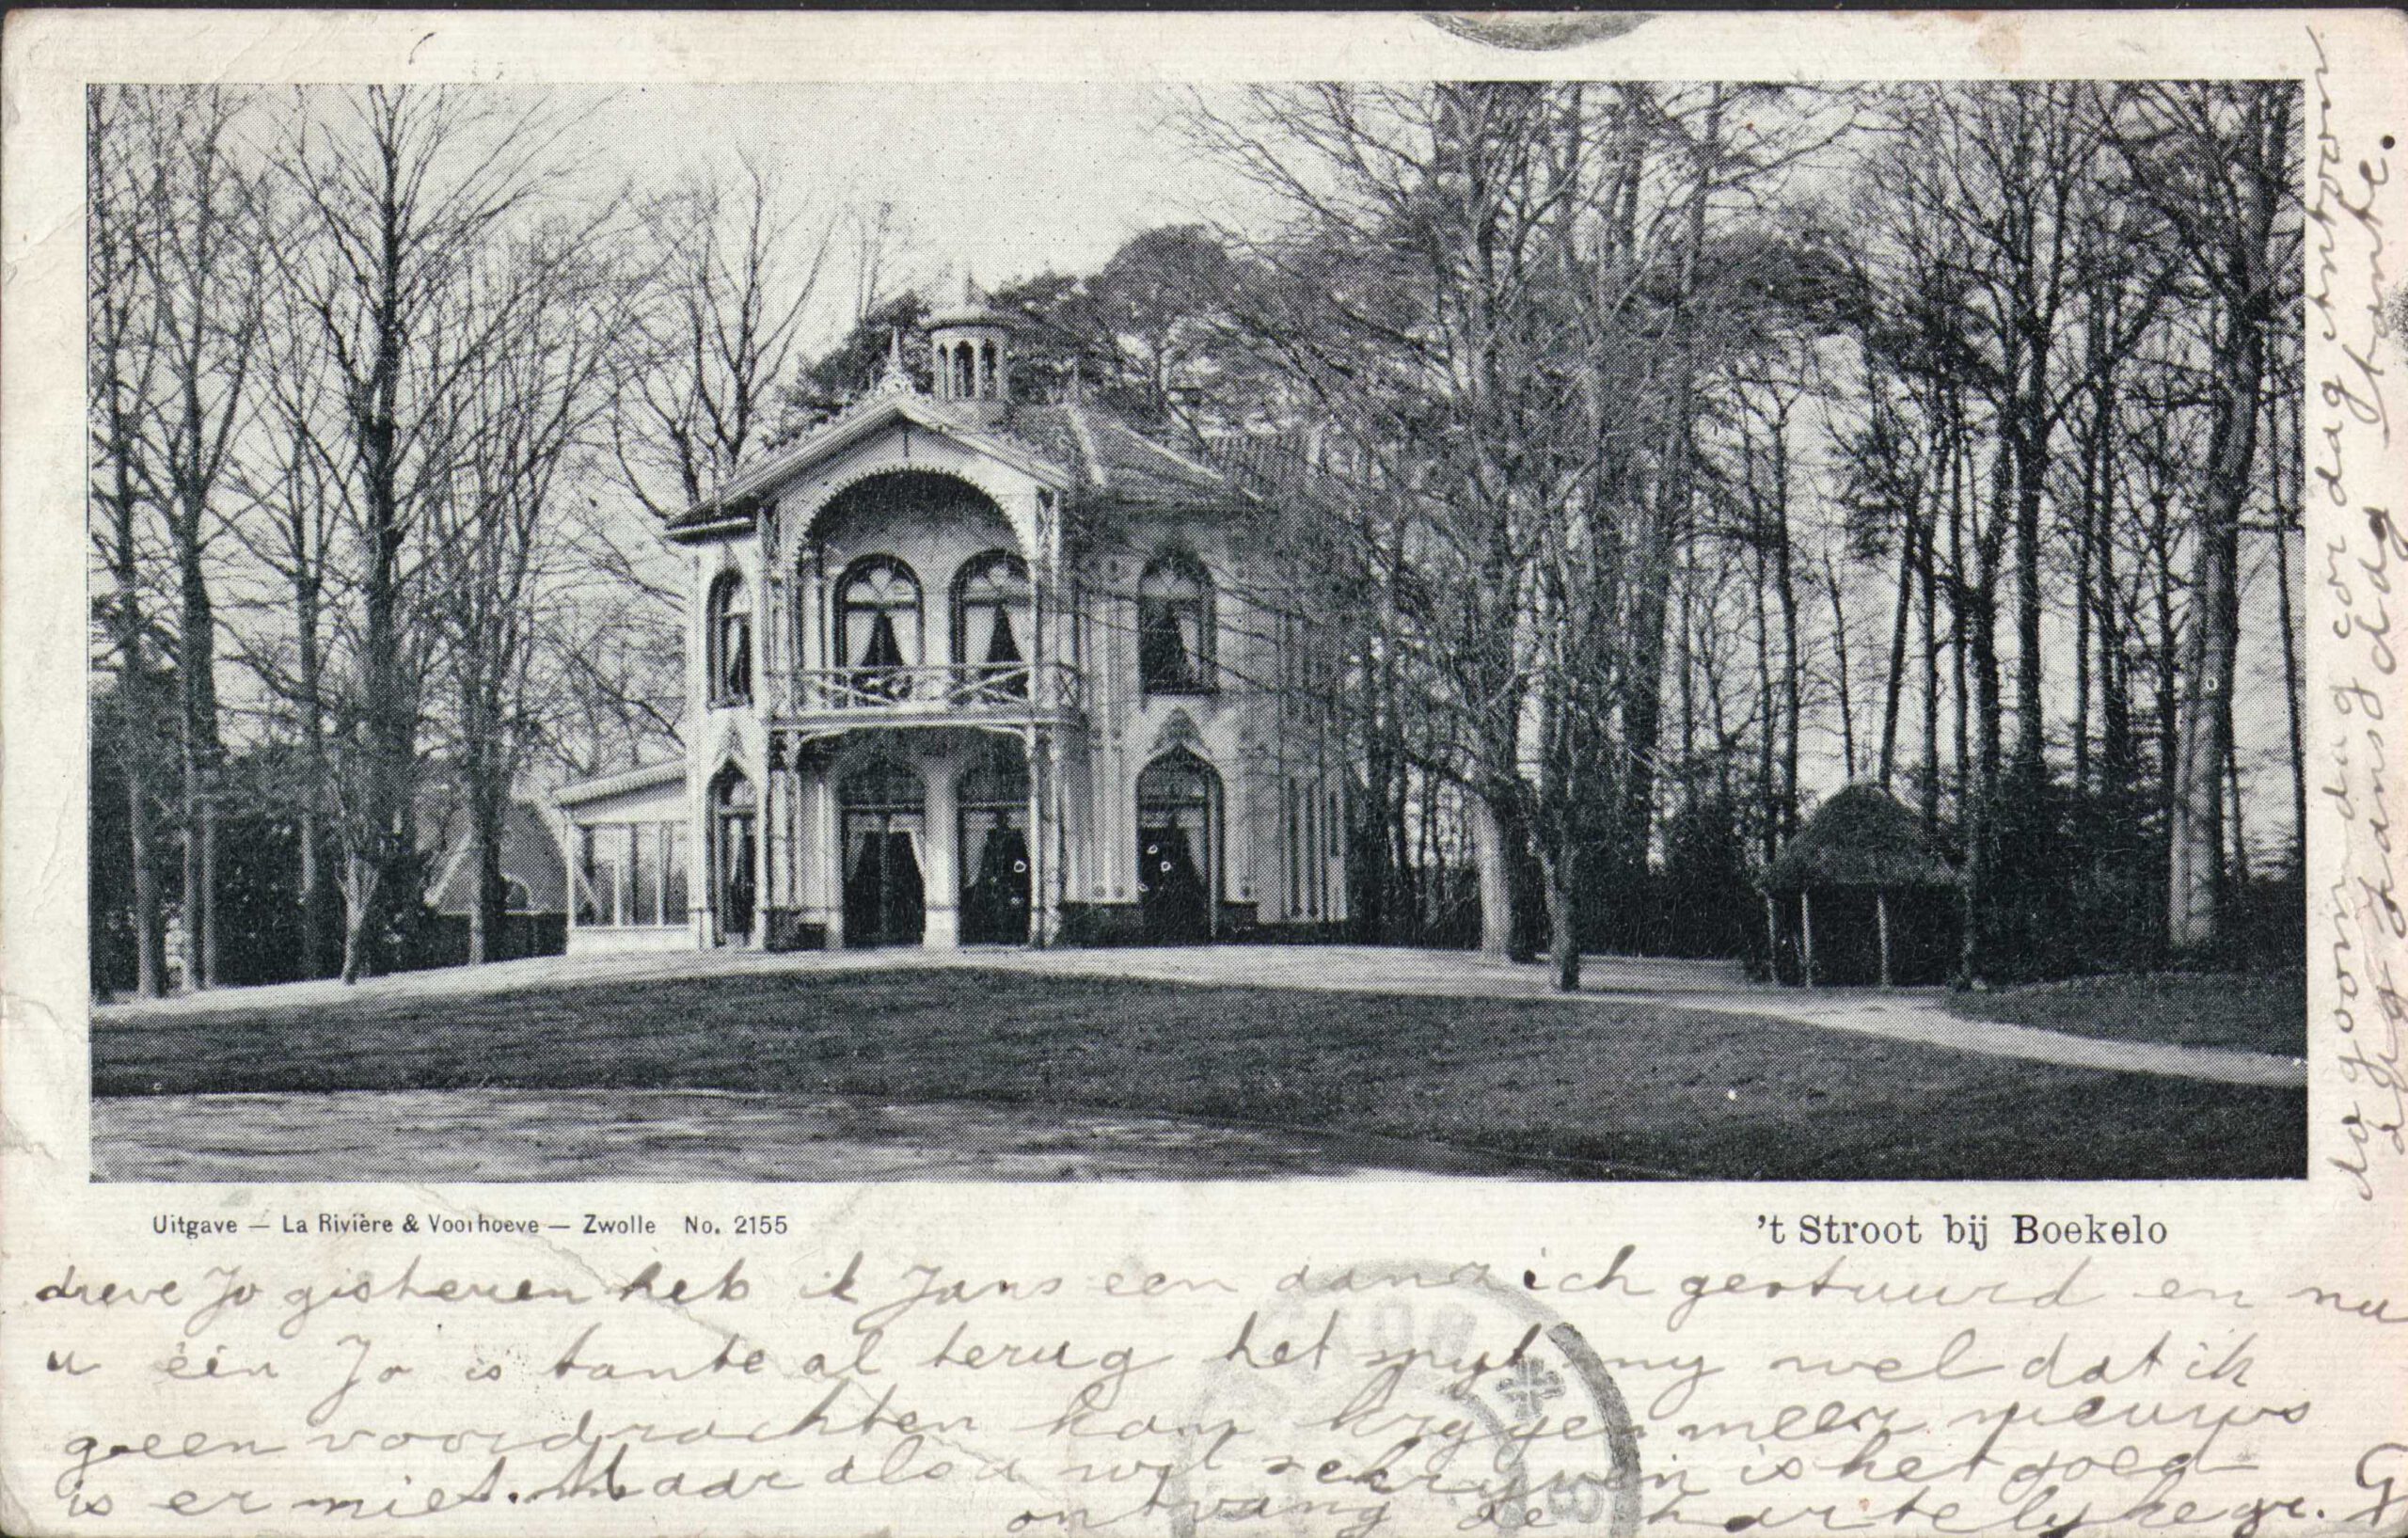 Uitgave — La Rivière & Voorhoeve — Zwolle No. 2155
't Stroot bij Boekelo
dreve Jo gisteren heb ik Jans een aanzich gestuurd en nu
u één Jo is tante al terug het spyt my wel dat ik
geen voordrachten kan krygen meer nieuws
is er niet. Maar als u wil schryven is het goed
ontvang de hartelyke gr. G
dag oom dag cor dag antoon
dag Jans dag tante.